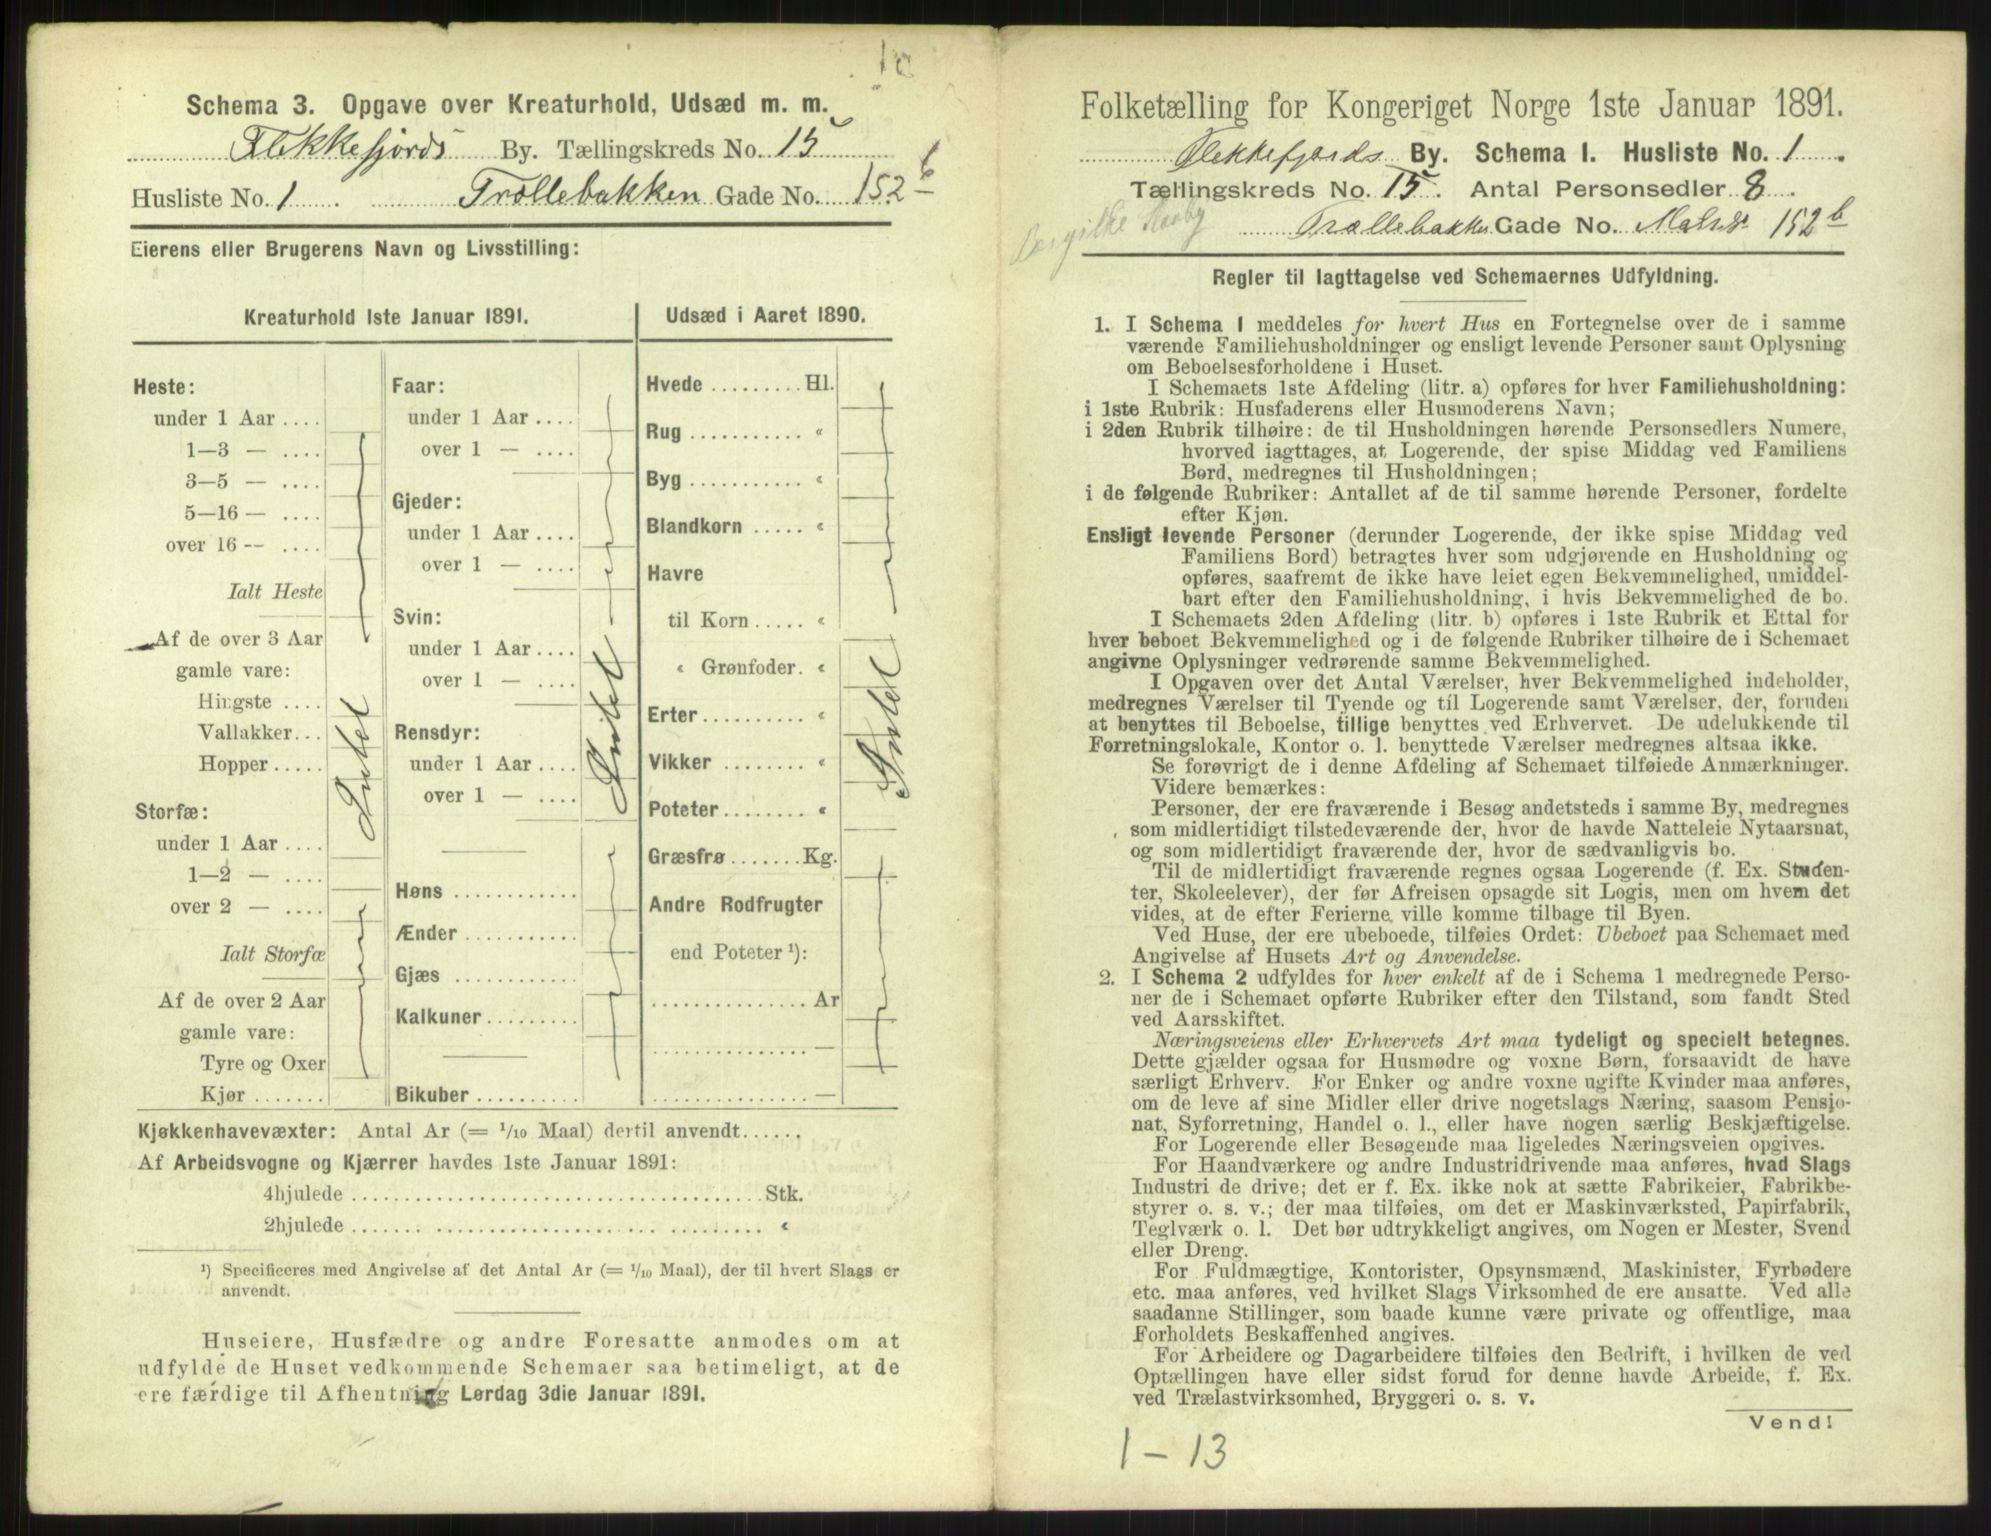 Schema 3. Opgave over Kreaturhold, Udsæd m. m.
Flekkefjords By. Tællingskreds No. 15
Husliste No. 1 Trøllebakken Gade No. 152 b
Eierens eller Brugerens Navn og Livsstilling:
Kreaturhold 1ste Januar 1891.
Heste:
under 1 Aar ....
1—3 — ....
3—5 — ....
5—16 — ....
over 16 — ....
Ialt Heste
Af de over 3 Aar
gamle vare:
Hingste ....
Vallakker...
Hopper .....
Storfæ:
under 1 Aar ....
1—2 — ....
over 2 — ....
Ialt Storfæ
Af de over 2 Aar
gamle vare:
Tyre og Oxer
Kjør .......
Intet
Faar:
under 1 Aar ....
over 1 — ....
Gjeder:
under 1 Aar ....
over 1 — ....
Svin:
under 1 Aar ....
over 1 — ....
Rensdyr:
under 1 Aar ....
over 1 — ....
Høns ...........
Ænder ..........
Gjæs ...........
Kalkuner.........
Bikuber ..........
Intet
Udsæd i Aaret 1890.
Hvede ......... Hl.
Rug ........... «
Byg ........... «
Blandkorn ..... «
Havre
til Korn ..... «
« Grønfoder. «
Erter.......... «
Vikker ........ «
Poteter........ «
Græsfrø ....... Kg.
Andre Rodfrugter
end Poteter ¹):
.............. Ar
.............. —
.............. —
Intet
Kjøkkenhavevæxter: Antal Ar (= 1/10 Maal) dertil anvendt......
Af Arbeidsvogne og Kjærrer havdes 1ste Januar 1891:
4hjulede ........................................ Stk.
2hjulede ........................................ «
¹) Specificeres med Angivelse af det Antal Ar (= 1/10 Maal), der til hvert Slags er
anvendt.
Huseiere, Husfædre og andre Foresatte anmodes om at
udfylde de Huset vedkommende Schemaer saa betimeligt, at de
ere færdige til Afhentning Lørdag 3die Januar 1891.
Folketælling for Kongeriget Norge 1ste Januar 1891.
Flekkefjords By. Schema I. Husliste No. 1
Tællingskreds No. 15. Antal Personsedler 8
Trøllebakken Gade No. 152 b
Regler til Iagttagelse ved Schemaernes Udfyldning.
1. I Schema 1 meddeles for hvert Hus en Fortegnelse over de i samme
værende Familiehusholdninger og ensligt levende Personer samt Oplysning
om Beboelsesforholdene i Huset.
I Schemaets 1ste Afdeling (litr. a) opføres for hver Familiehusholdning:
i 1ste Rubrik: Husfaderens eller Husmoderens Navn;
i 2den Rubrik tilhøire: de til Husholdningen hørende Personsedlers Numere,
hvorved iagttages, at Logerende, der spise Middag ved Familiens
Bord, medregnes til Husholdningen;
i de følgende Rubriker: Antallet af de til samme hørende Personer, fordelte
efter Kjøn.
Ensligt levende Personer (derunder Logerende, der ikke spise Middag ved
Familiens Bord) betragtes hver som udgjørende en Husholdning og
opføres, saafremt de ikke have leiet egen Bekvemmelighed, umiddel-
bart efter den Familiehusholdning, i hvis Bekvemmelighed de bo.
I Schemaets 2den Afdeling (litr. b) opføres i 1ste Rubrik et Ettal for
hver beboet Bekvemmelighed og i de følgende Rubriker tilhøire de i Schemaet
angivne Oplysninger vedrørende samme Bekvemmelighed.
I Opgaven over det Antal Værelser, hver Bekvemmelighed indeholder,
medregnes Værelser til Tyende og til Logerende samt Værelser, der, foruden
at benyttes til Beboelse, tillige benyttes ved Erhvervet. De udelukkende til
Forretningslokale, Kontor o. l. benyttede Værelser medregnes altsaa ikke.
Se forøvrigt de i denne Afdeling af Schemaet tilføiede Anmærkninger.
Videre bemærkes:
Personer, der ere fraværende i Besøg andetsteds i samme By, medregnes
som midlertidigt tilstedeværende der, hvor de havde Natteleie Nytaarsnat,
og som midlertidigt fraværende der, hvor de sædvanligvis bo.
Til de midlertidigt fraværende regnes ogsaa Logerende (f. Ex. Studen-
ter, Skoleelever), der før Afreisen opsagde sit Logis, men om hvem det
vides, at de efter Ferierne ville komme tilbage til Byen.
Ved Huse, der ere ubeboede, tilføies Ordet: Ubeboet paa Schemaet med
Angivelse af Husets Art og Anvendelse.
2. I Schema 2 udfyldes for hver enkelt af de i Schema 1 medregnede Perso-
ner de i Schemaet opførte Rubriker efter den Tilstand, som fandt Sted
ved Aarsskiftet.
Næringsveiens eller Erhvervets Art maa tydeligt og specielt betegnes.
Dette gjælder ogsaa for Husmødre og voxne Børn, forsaavidt de have
særligt Erhverv. For Enker og andre voxne ugifte Kvinder maa anføres,
om de leve af sine Midler eller drive nogetslags Næring, saasom Pensjo-
nat, Syforretning, Handel o. l., eller have nogen særlig Beskjæftigelse.
For Logerende eller Besøgende maa ligeledes Næringsveien opgives.
For Haandværkere og andre Industridrivende maa anføres, hvad Slags
Industri de drive; det er f. Ex. ikke nok at sætte Fabrikeier, Fabrikbe-
styrer o. s. v.; der maa tilføies, om det er Maskinværksted, Papirfabrik,
Teglværk o. l. Det bør udtrykkeligt angives, om Nogen er Mester, Svend
eller Dreng.
For Fuldmægtige, Kontorister, Opsynsmænd, Maskinister, Fyrbødere
etc. maa anføres, ved hvilket Slags Virksomhed de ere ansatte. Ved alle
saadanne Stillinger, som baade kunne være private og offentlige, maa
Forholdets Beskaffenhed angives.
For Arbeidere og Dagarbeidere tilføies den Bedrift, i hvilken de ved
Optællingen have eller sidst forud for denne havde Arbeide, f. Ex.
ved Trælastvirksomhed, Bryggeri o. s. v.
Vend!
1 — 13